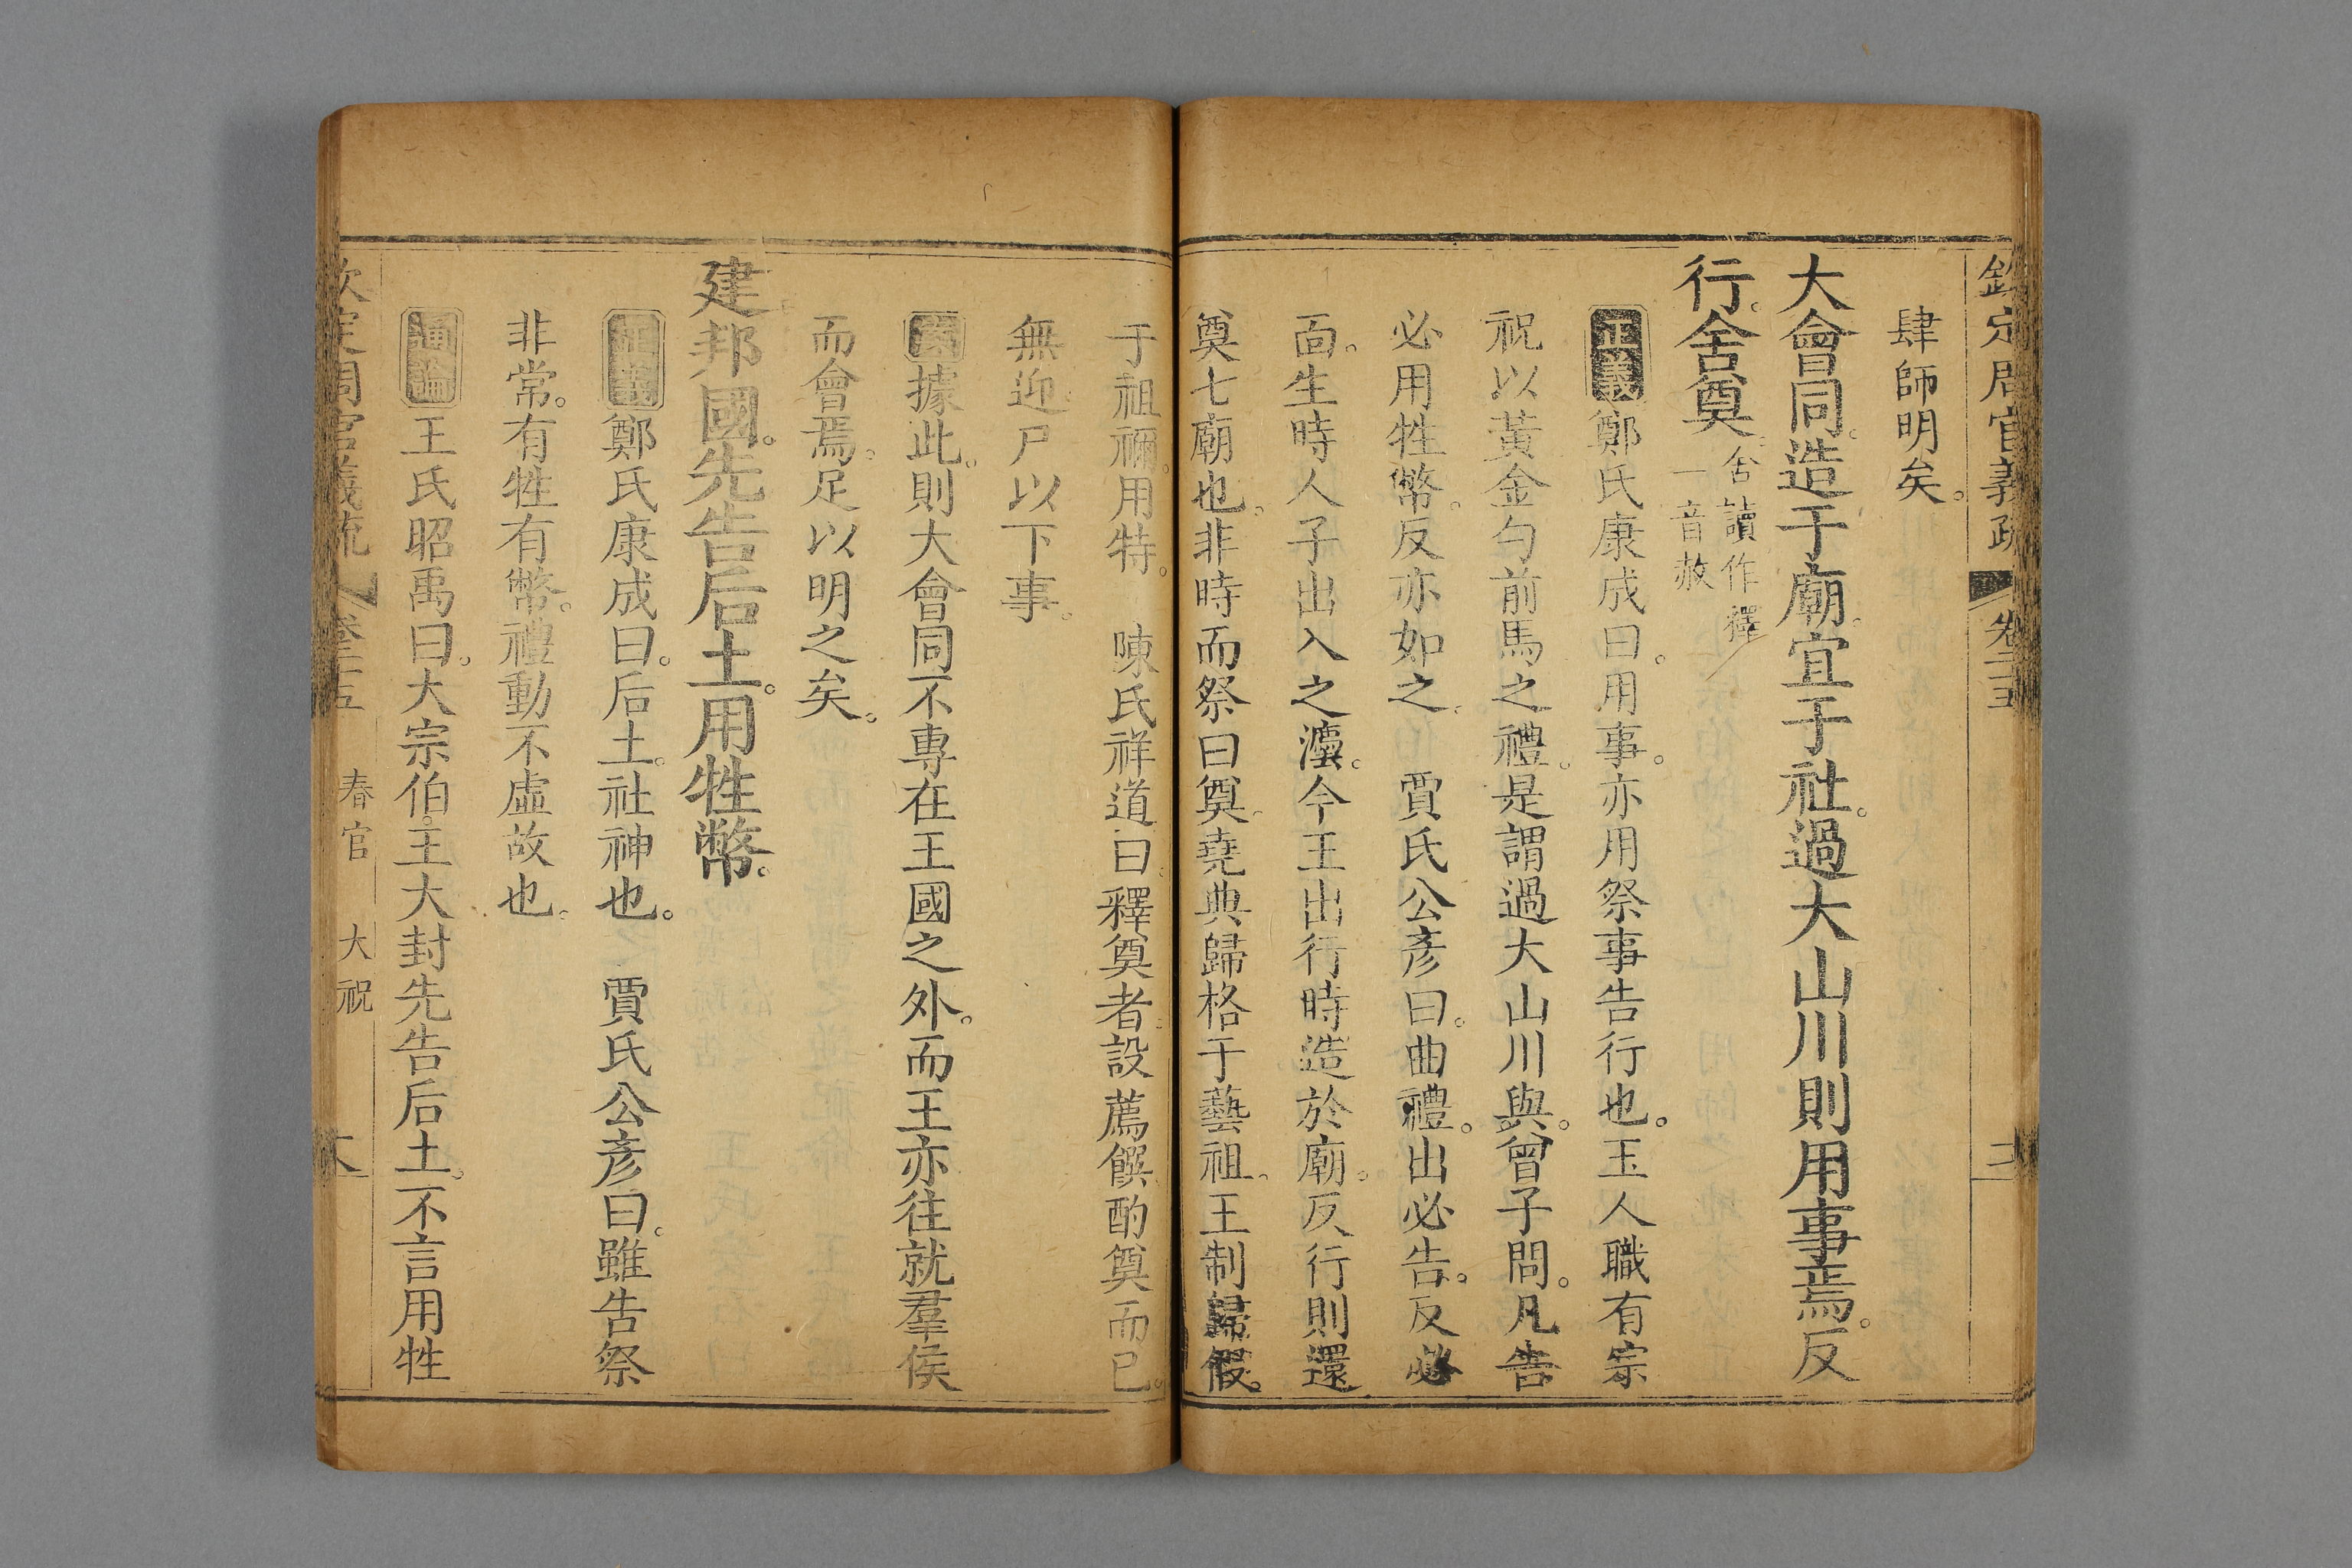 欽定周官義疏 卷二十五
肆師明矣。
大會同。造于廟。宜于社。過大山川。則用事焉。反
行。舍奠。舍讀作釋
一音赦
正義鄭氏康成曰。用事。亦用祭事告行也。玉人職有宗
祝以黃金勺前馬之禮。是謂過大山川與。曾子問。凡告
必用牲幣。反亦如之。 賈氏公彥曰。曲禮。出必告。反必
面。生時人子出入之灋。今王出行時造於廟。反行則還
奠七廟也。非時而祭曰奠。堯典歸格于藝祖。王制歸假。
于祖禰。用特。 陳氏祥道曰。釋奠者。設薦饌酌奠而已。
無迎尸以下事。
案據此。則大會同不專在王國之外。而王亦往就羣侯
而會焉。足以明之矣。
建邦國。先告后土。用牲幣。
正義鄭氏康成曰。后土。社神也。 賈氏公彥曰。雖告祭
非常。有牲有幣。禮動不虛故也。
通論王氏昭禹曰。大宗伯。王大封先告后土。不言用牲
欽定周官義疏 卷二十五 春官 大祝